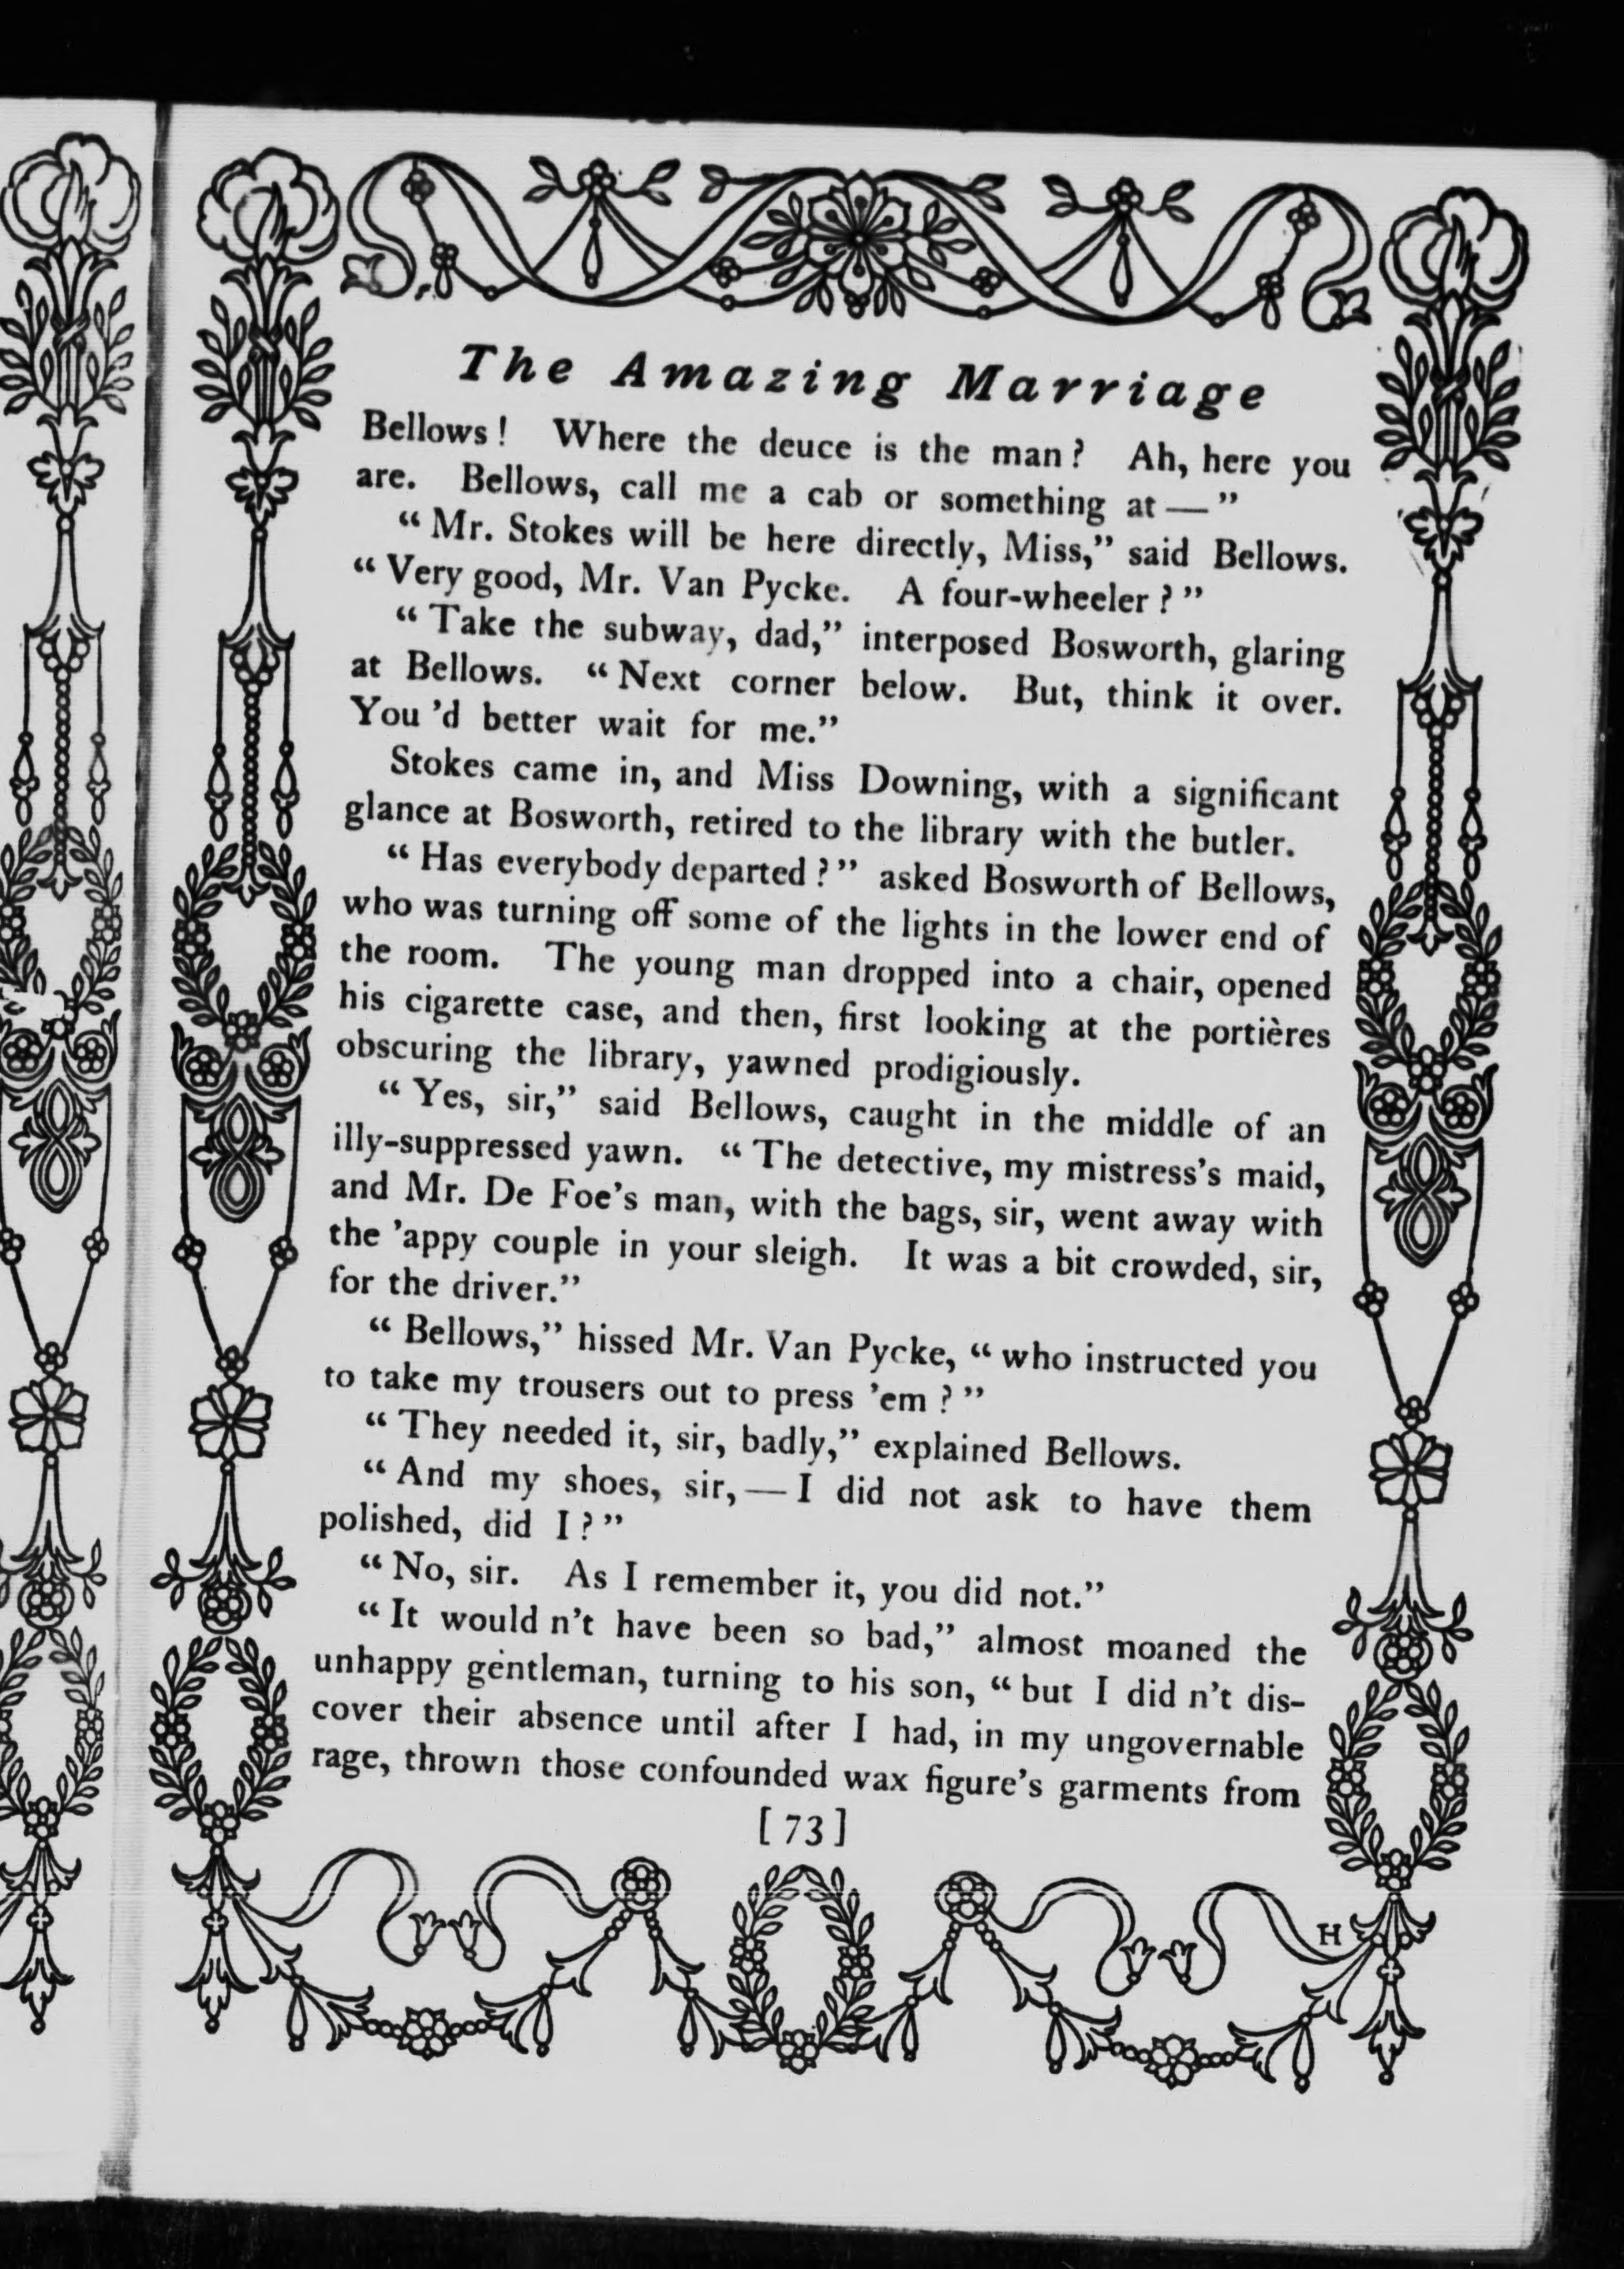 The Amazing Marriage
Bellows! Where the deuce is the man? Ah, here you
are. Bellows, call me a cab or something at — ”
“ Mr. Stokes will be here directly, Miss,” said Bellows.
“ Very good, Mr. Van Pycke. A four-wheeler ? ”
“ Take the subway, dad,” interposed Bosworth, glaring
at Bellows. “ Next corner below. But, think it over.
You 'd better wait for me.”
Stokes came in, and Miss Downing, with a significant
glance at Bosworth, retired to the library with the butler.
“ Has everybody departed ? ” asked Bosworth of Bellows,
who was turning off some of the lights in the lower end of
the room. The young man dropped into a chair, opened
his cigarette case, and then, first looking at the portières
obscuring the library, yawned prodigiously.
“ Yes, sir,” said Bellows, caught in the middle of an
illy-suppressed yawn. “ The detective, my mistress's maid,
and Mr. De Foe's man, with the bags, sir, went away with
the 'appy couple in your sleigh. It was a bit crowded, sir,
for the driver.”
“ Bellows,” hissed Mr. Van Pycke, “ who instructed you
to take my trousers out to press 'em ? ”
“ They needed it, sir, badly,” explained Bellows.
“ And my shoes, sir, — I did not ask to have them
polished, did I ? ”
“ No, sir. As I remember it, you did not.”
“ It would n't have been so bad,” almost moaned the
unhappy gentleman, turning to his son, “ but I did n't dis-
cover their absence until after I had, in my ungovernable
rage, thrown those confounded wax figure's garments from
[ 73 ]
H